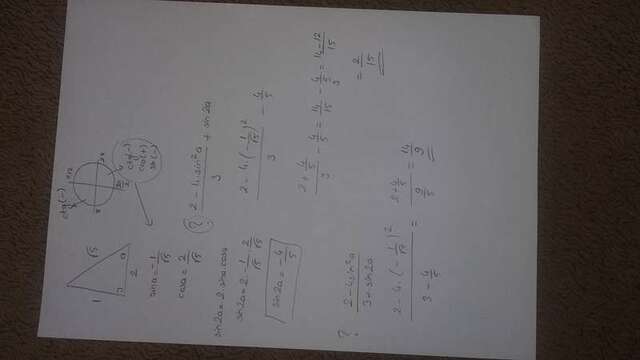 ctg(-)
π/2
2π
3π/2
ctg(-)
cos(+)
sin(-)
√5
1
2
a
sina = -1/√5
cosa = 2/√5
sin2a = 2.sina.cosa
sin2a = 2.-1/√5.2/√5
sin2a = -4/5
? 2-4.sin²a/3+sin2a
2-4.(-1/√5)²/3-4/5 = 2+4/5/9/5 = 14/9
(?) 2-4.sin²a/3 + sin2a
2-4.(-1/√5)²/3 - 4/5
2+4/5/3 - 4/5 = 14/15 - 4/5 = 14-12/15
3
= 2/15